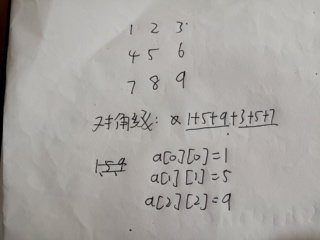 1 2 3
4 5 6
7 8 9
对角线: 1+5+9+3+5+7
1 5 9
a[0][0]=1
a[1][1]=5
a[2][2]=9